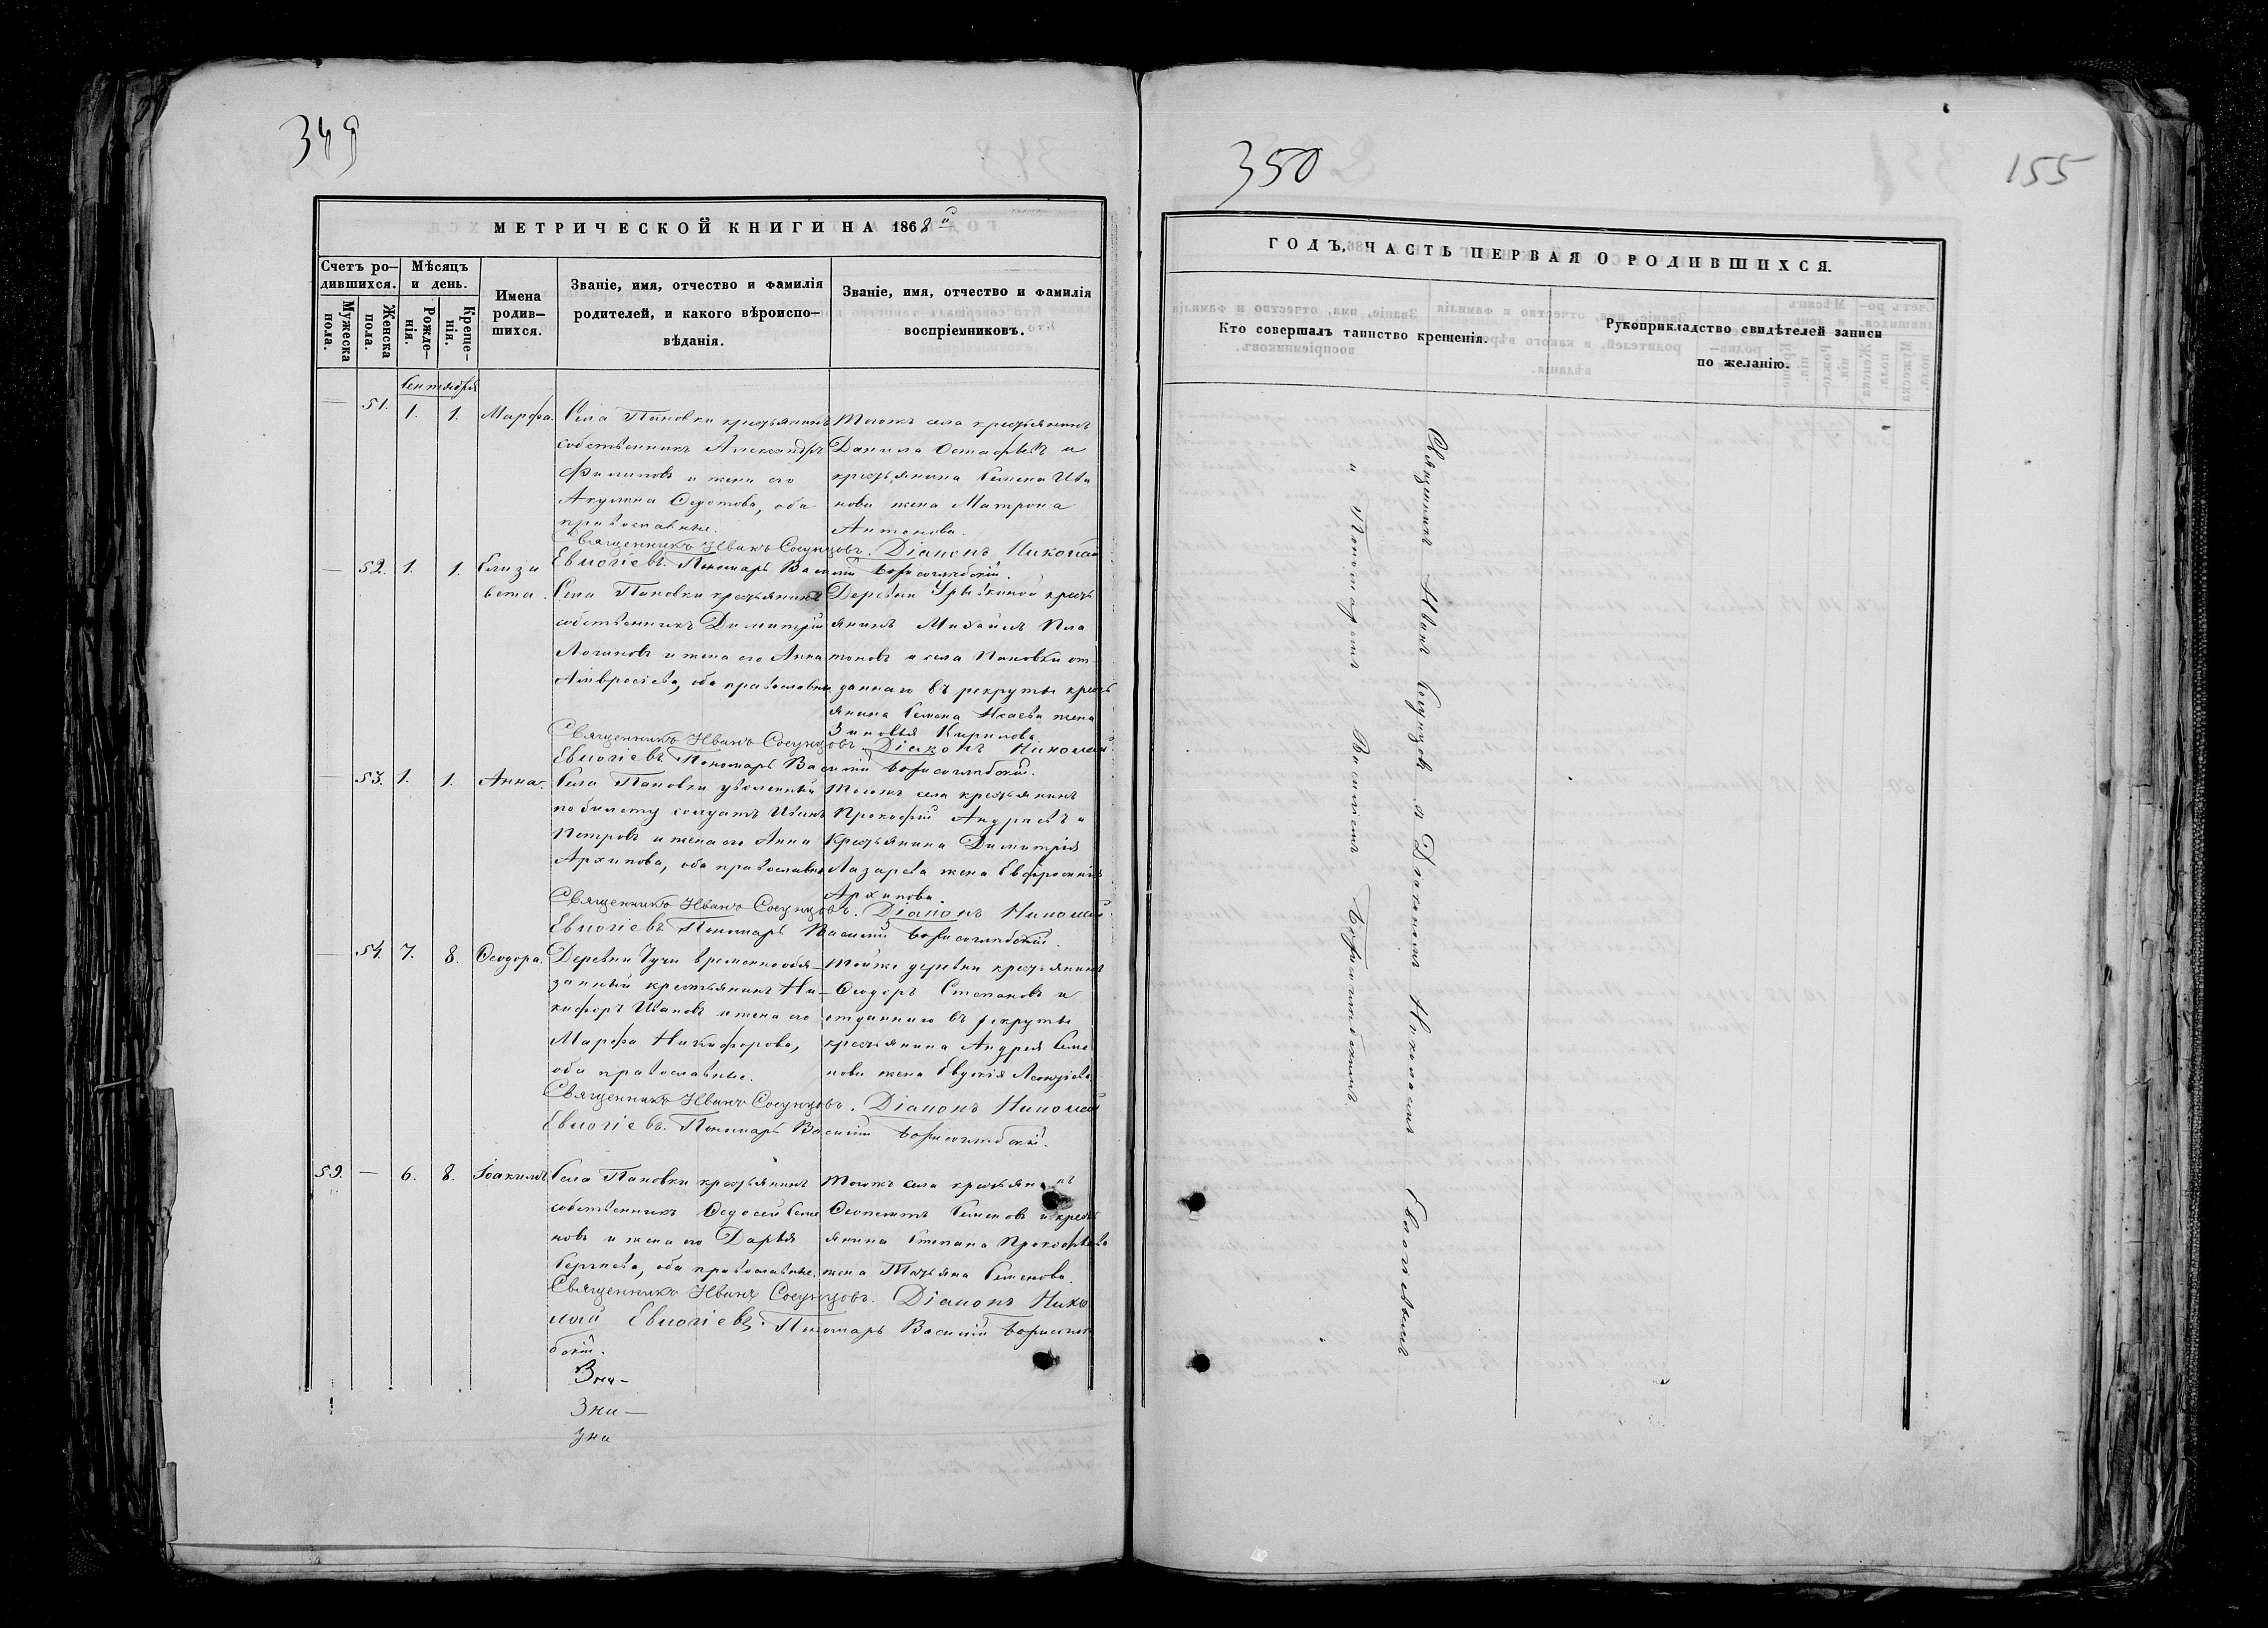 349
МЕТРИЧЕСКОЙ КНИГИ НА 1868й
Счетъ ро-
дившихся.
Мужеска
пола.
Женска
пола.
Мѣсяцъ
и день.
Рожде-
нія.
Креще-
нія.
Имена
родив-
шихся.
Званіе, имя, отчество и фамилія
родителей, и какого вѣроиспо-
вѣданія.
Званіе, имя, отчество и фамилія
воспріемниковъ.
Сентября
— 51. 1. 1. Марфа.
Села Пановки крестьянинъ
собственникъ Александръ
Филиповъ и жена его
Акулина Федотова, оба
православные.
Тогожъ села крестьянинъ
Данила Остафьевъ и
крестьянина Семена Ива
нова жена Матрона
Антонова.
Священникъ Иванъ Сосунцовъ. Діаконъ Николай
Евлогіевъ. Пономарь Василій Борисоглебскій.
— 52. 1. 1. Елиза
вета.
Села Пановки крестьянинъ
собственникъ Димитрій
Логиновъ и жена его Анна
Амвросіева, оба православны
Деревни Урывкиной кресть
янинъ Михаилъ Пла
тоновъ и села Пановки от-
даннаго въ рекруты кресть
янина Семена Исаева жена
Зиновья Кирилова.
Священникъ Иванъ Сосунцовъ. Діаконъ Николай
Евлогіевъ. Пономарь Василій Борисоглебскій.
— 53. 1. 1. Анна.
Села Пановки уволенный
по билету солдатъ Иванъ
Петровъ и жена его Анна
Архипова, оба православны
Тогожъ села крестьянинъ
Прокофій Андреевъ и
Крестьянина Димитрія
Лазарева жена Евфросинія
Архипова.
Священникъ Иванъ Сосунцовъ. Діаконъ Николай
Евлогіевъ. Пономарь Василій Борисоглебскій.
— 54. 7. 8. Ѳеодора.
Деревни временнообя-
занный крестьянинъ Ни-
кифоръ Ивановъ и жена его
Марфа Никифорова,
оба православные.
Тойже деревни крестьянинъ
Ѳеодоръ Степановъ и
отданнаго въ рекруты
крестьянина Андрея Семе
нова жена Евдокія Леонтьева
Священникъ Иванъ Сосунцовъ. Діаконъ Николай
Евлогіевъ. Пономарь Василій Борисоглебскій.
59. — 6. 8. Іоакимъ
Села Пановки крестьянинъ
собственникъ Ѳедосей Семе
новъ и жена его Дарья
Сергѣева, оба православные.
Тогожъ села крестьянинъ
Ѳеопемтъ Семеновъ и кресть
янина Степана Прокофьева
жена Татьяна Семенова.
Священникъ Иванъ Сосунцовъ. Діаконъ Нико
лай Евлогіевъ. Пономарь Василій Борисоглеб
скій.
350
155
ГОДЪ, ЧАСТЬ ПЕРВАЯ О РОДИВШИХСЯ.
Кто совершалъ таинство крещенія.
Рукоприкладство свидѣтелей записи
по желанію.
Священникъ Иванъ Сосунцовъ съ Діакономъ Николаемъ Евлогіевымъ
и Пономаремъ Василіемъ Борисоглебскимъ.